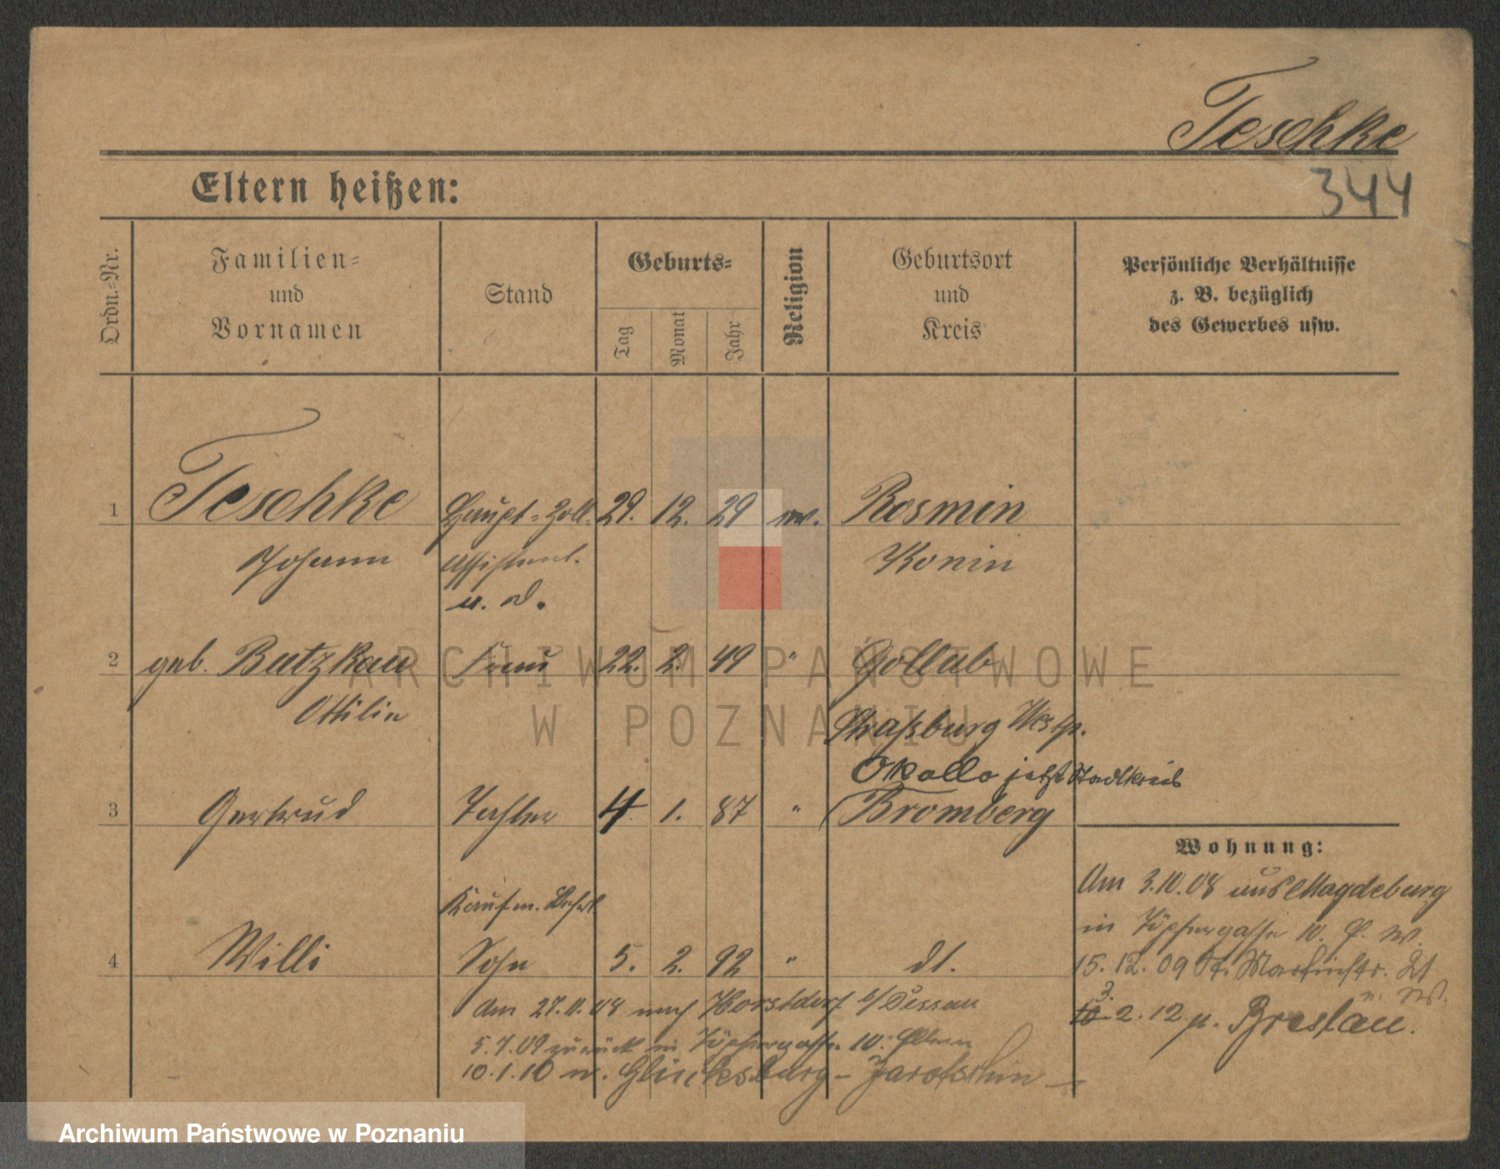 Teschke
344
Eltern heißen:
Ordn.-Nr.
Familien-
und
Vornamen
Stand
Geburts-
Tag
Monat
Jahr
Religion
Geburtsort
und
Kreis
Persönliche Verhältnisse
z. B. bezüglich
des Gewerbes usw.
1 Teschke Haupt-Zoll. 29. 12. 29 ev. Rosmin
Johann Assistent. Konin
a. D.
2 geb. Batzkau Frau 22. 2. 49 " Gollub
Ottilie Straßburg Westp.
Okollo jetzt Stadtkreis
3 Gertrud Tochter 4 1. 87 " Bromberg
Wohnung:
Am 3.10.08 aus Magdeburg
Kaufm. Lehrl
in Töpfergasse 10.
4 Willi Sohn 5. 2. 92 " dt.
15.12.09 St. Martinstr.
Am 27.11.08 nach Horstdorf b/Dessau
3. 10 2.12 n. Breslau.
5.7.09 zurück in Töpfergasse 10. Eltern
10.1.10 n. - Jarotschin
ARCHIWUM PAŃSTWOWE
W POZNANIU
Archiwum Państwowe w Poznaniu